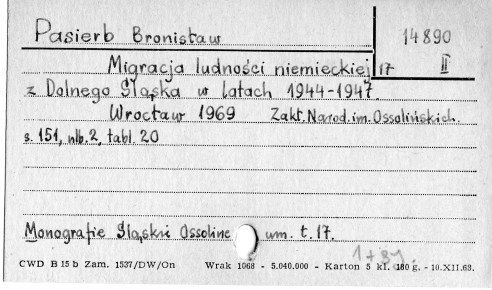 Pasierb Bronisław
14890
II
Migracja ludności niemieckiej 17
z Dolnego Śląska w latach 1944-1947
Wrocław 1969 Zakt. Narod. im. Ossolińskich.
s. 151, nlb. 2, tabl. 20
Monografie Śląskie Ossoline um. t. 17.
CWD B 15 b Zam. 1537/DW/On Wrak 1068 - 5.040.000 - Karton 5 kl. 180 g. - 10.XII.68.